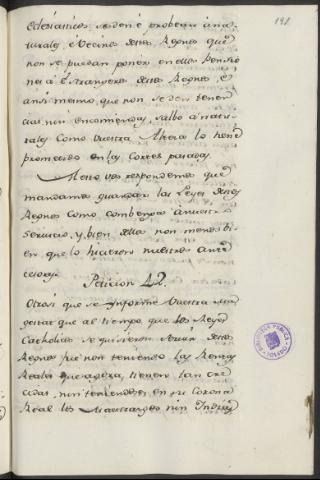 191.
Eclesiasticos, se den e probean à na-
turales, e Vecinos destos Reynos que
non se puedan poner en ellos Pensio
nes à Estrangeros destos Reynos, e
ansi mesmo, que non se den tenen
cias, nin encomiendas, salbo à natu-
rales como Vuestra Alteza lo tiene
prometido en las Cortes pasadas.
A esto vos respondemos que
mandamos guardar las Leyes destos
Reynos como combenga à nuestro
Servicio, y bien dellos non menos bi-
en, que lo hicieron nuestros ante
cesores.
Peticion 42.
Otrosi que se Informe Vuestra Ma
gestat que al tiempo que los Reyes
Catholicos se
destos
Reynos que non teniendo las Rentas
Reales que agora, tienen tan cre
cidas, nin teniendose en su Corona
Real los Maestrazgos nin Indias
BIBLIOTECA PUBLICA
TOLEDO